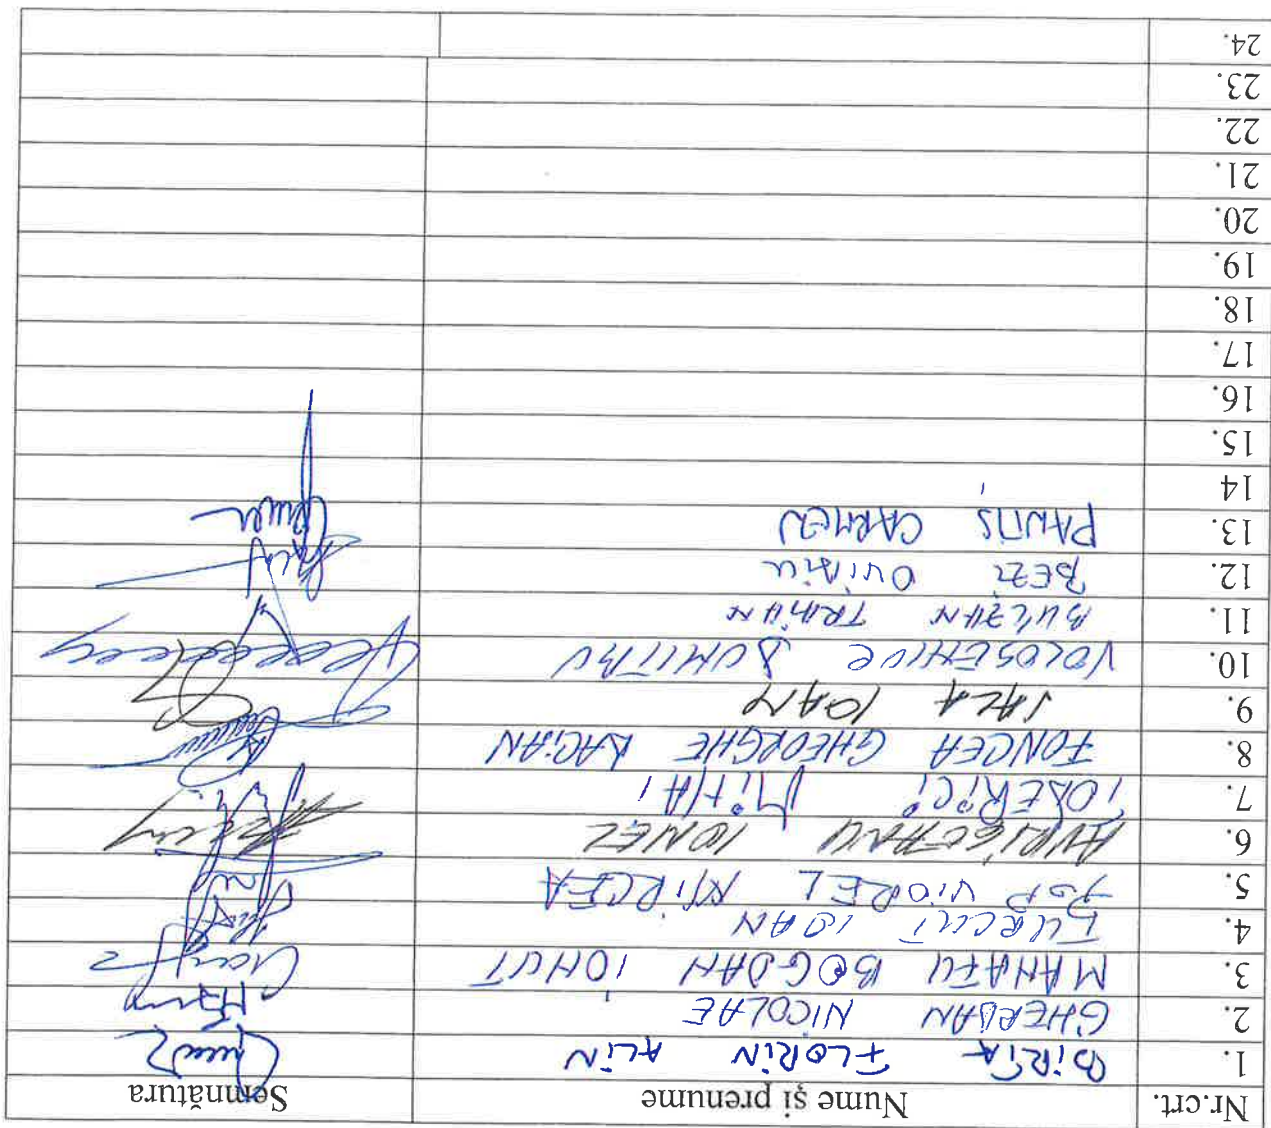 Nr.crt. Nume și prenume Semnătura
1. BIRTA FLORIN ALIN
2. GHERDAN NICOLAE
3. MANAFU BOGDAN IONUT
4. IOAN
5. POP VIOREL MIRCEA
6. AVRIGEANU IONEL
7. IODERICI MIHAI
8. FONCEA GHEORGHE DACIAN
9. SALA IOAN
10. VOLOSENIUC DUMITRU
11. BULZAN TRAIAN
12. BEZE OVIDIU
13. PANTIȘ CARMEN
14
15.
16.
17.
18.
19.
20.
21.
22.
23.
24.